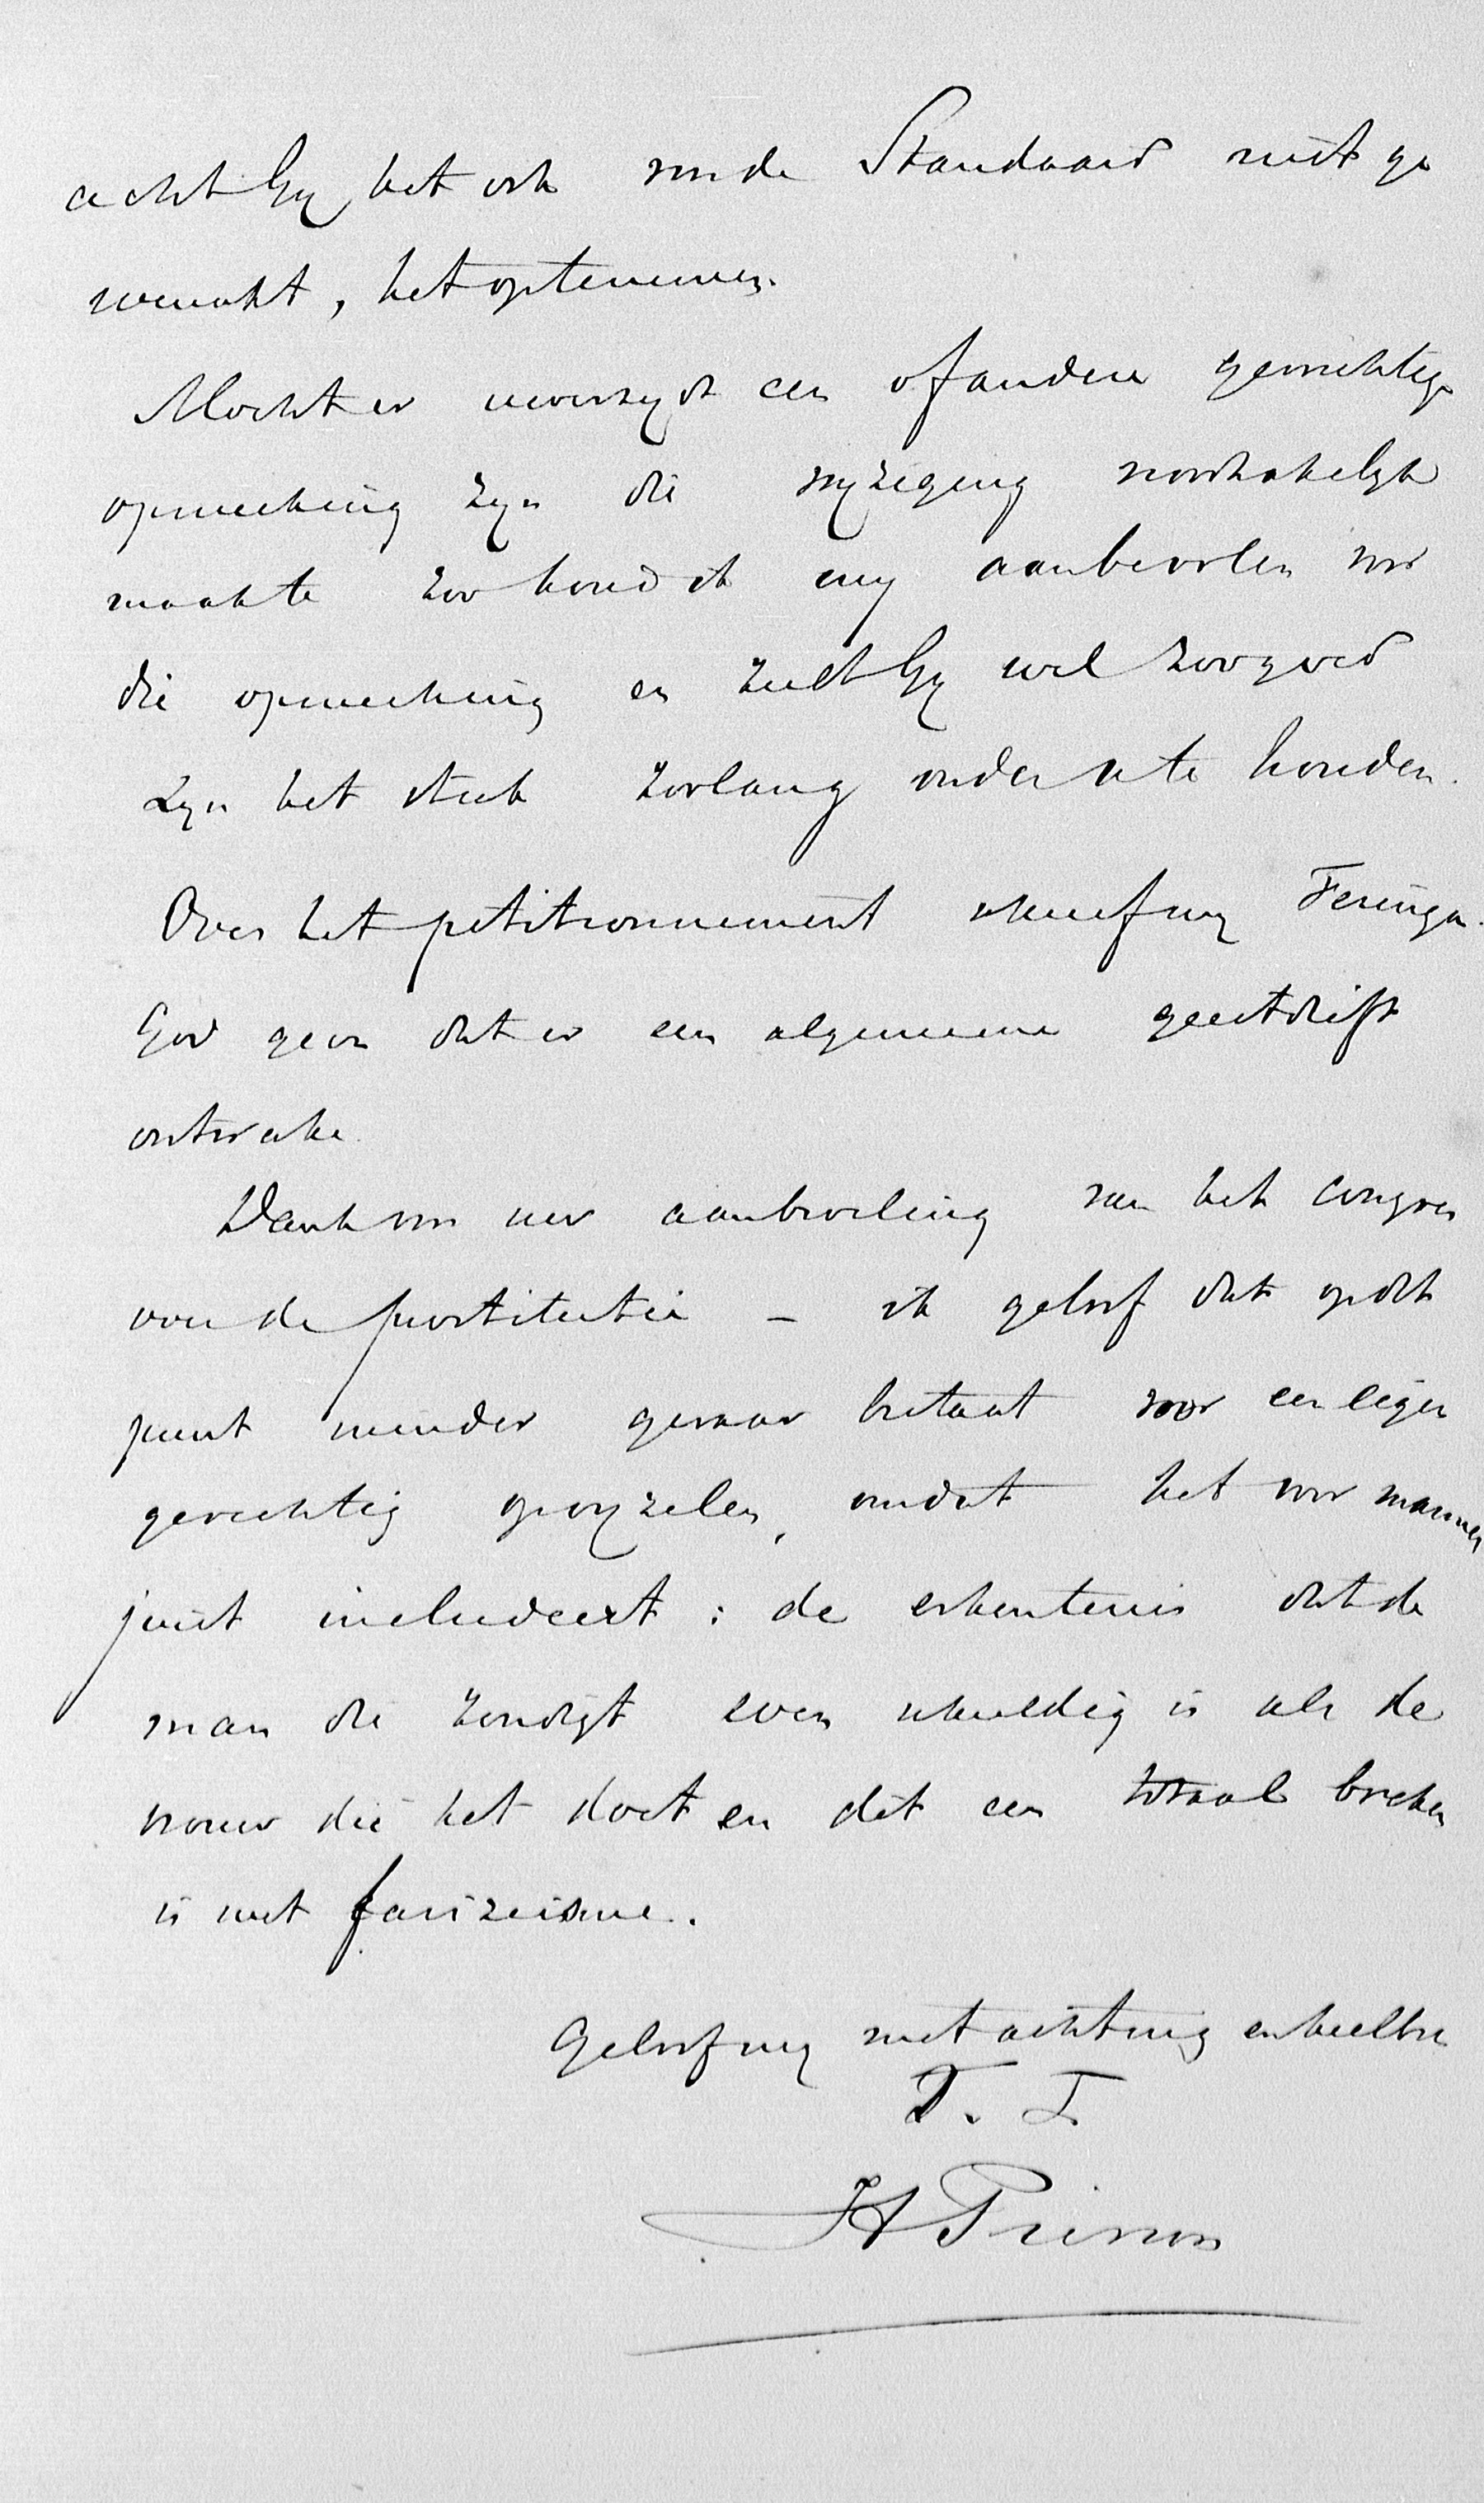 acht Gy het ook voor de Standaard niet ge
wenscht, het optenemen.
Mocht er uwerzyds een of andere gewichtige
opmerking zyn die wyziging noodzakelyk
maakte zoo houd ik my aanbevolen voor
die opmerking en zult Gy wel zoo goed
zyn het stuk zoolang onder u te houden.
Over het petitionnement schreef my Feringa.
God geve dat er een algemeene geestdrift
ontwake.
Dank voor uw aanbeveling van het congres
over de prostitutie – ik geloof dat op dit
punt minder gevaar bestaat voor een eigen
gerechtig opwyzelen, omdat het voor mannen
juist includeert : de erkentenis dat de
man die zondigt even schuldig is als de
vrouw die het doet en dit een totaal breken
is met farizeisme.
Geloof my met achting en heilbede
T. T.
H Pierson